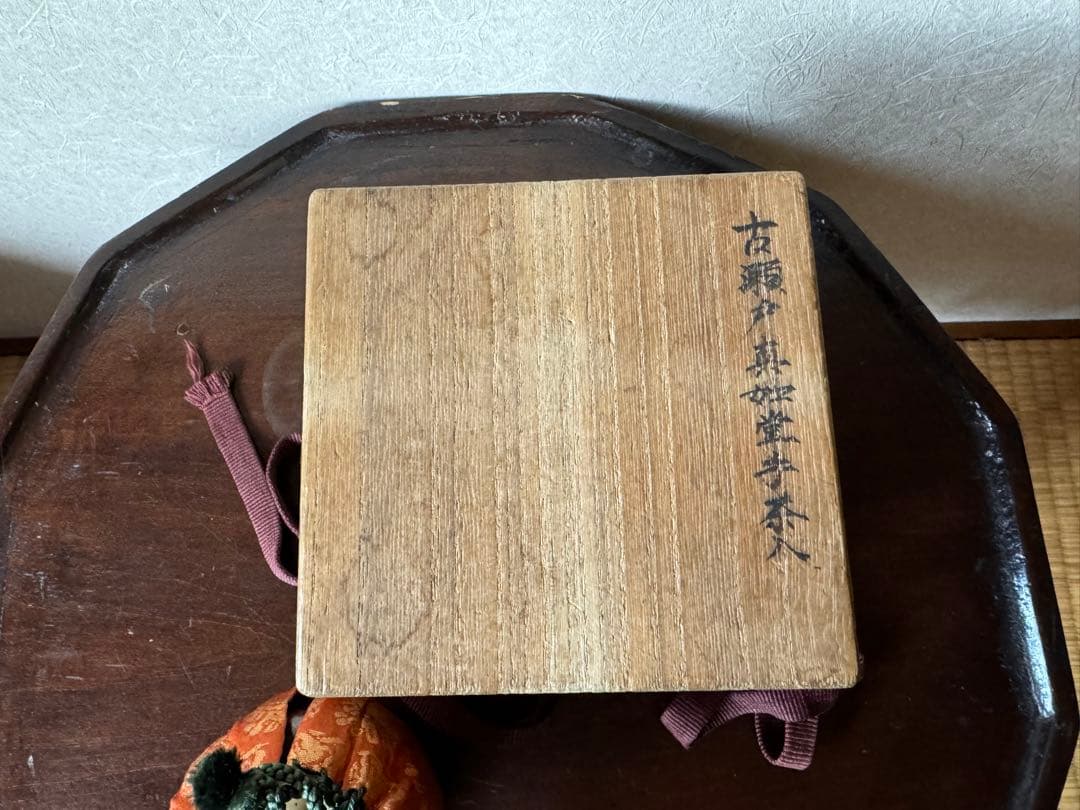 古瀬戸真如堂手茶入